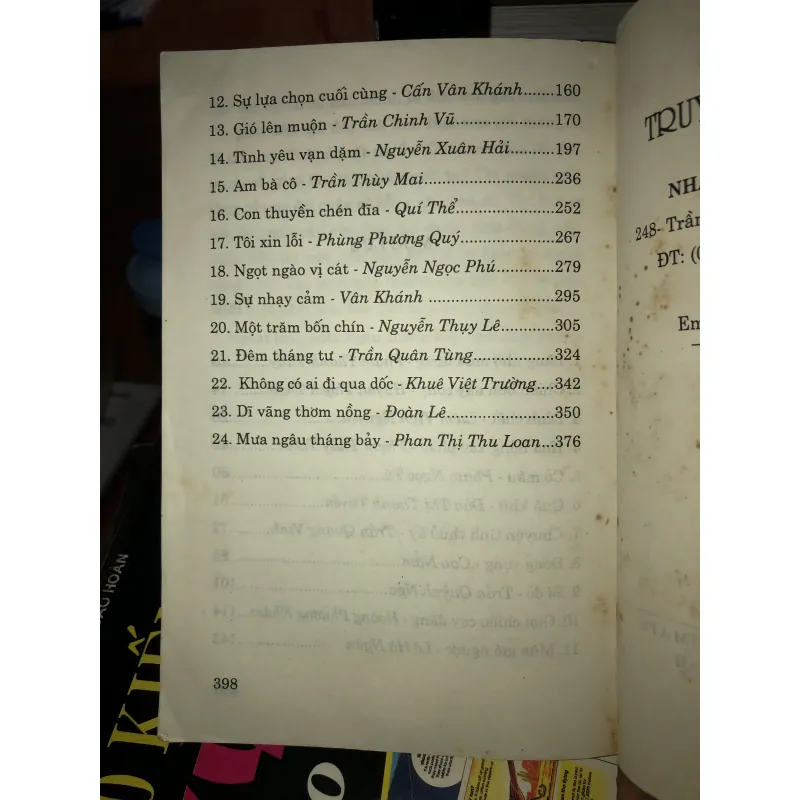 12. Sự lựa chọn cuối cùng - Cấn Vân Khánh.......160
13. Gió lên muộn - Trần Chinh Vũ......................170
14. Tình yêu vạn dặm - Nguyễn Xuân Hải..........197
15. Am bà cô - Trần Thùy Mai............................236
16. Con thuyền chén đĩa - Quí Thể.....................252
17. Tôi xin lỗi - Phùng Phương Quý...................267
18. Ngọt ngào vị cát - Nguyễn Ngọc Phú............279
19. Sự nhạy cảm - Vân Khánh ..........................295
20. Một trăm bốn chín - Nguyễn Thụy Lê..........305
21. Đêm tháng tư - Trần Quân Tùng.................324
22. Không có ai đi qua dốc - Khuê Việt Trường....342
23. Dĩ vãng thơm nồng - Đoàn Lê.....................350
24. Mưa ngâu tháng bảy - Phan Thị Thu Loan...376
398
TRUY
NHA
248- Trần
ĐT: (0
Em
HOÀN
KIẾ